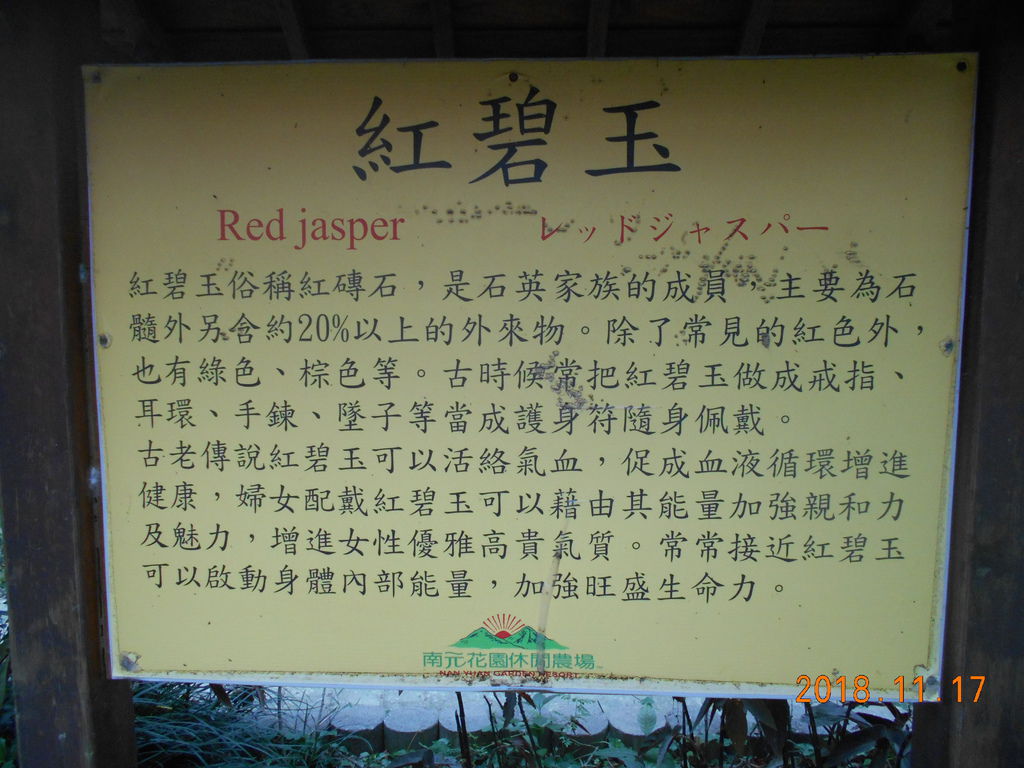 紅碧玉
Red jasper レッドジャスパー
紅碧玉俗稱紅磚石，是石英家族的成員，主要為石
髓外另含約20%以上的外來物。除了常見的紅色外，
也有綠色、棕色等。古時候常把紅碧玉做成戒指、
耳環、手鍊、墜子等當成護身符隨身佩戴。
古老傳說紅碧玉可以活絡氣血，促成血液循環增進
健康，婦女配戴紅碧玉可以藉由其能量加強親和力
及魅力，增進女性優雅高貴氣質。常常接近紅碧玉
可以啟動身體內部能量，加強旺盛生命力。
南元花園休閒農場
NAN YUAN GARDEN RESORT
2018.11.17